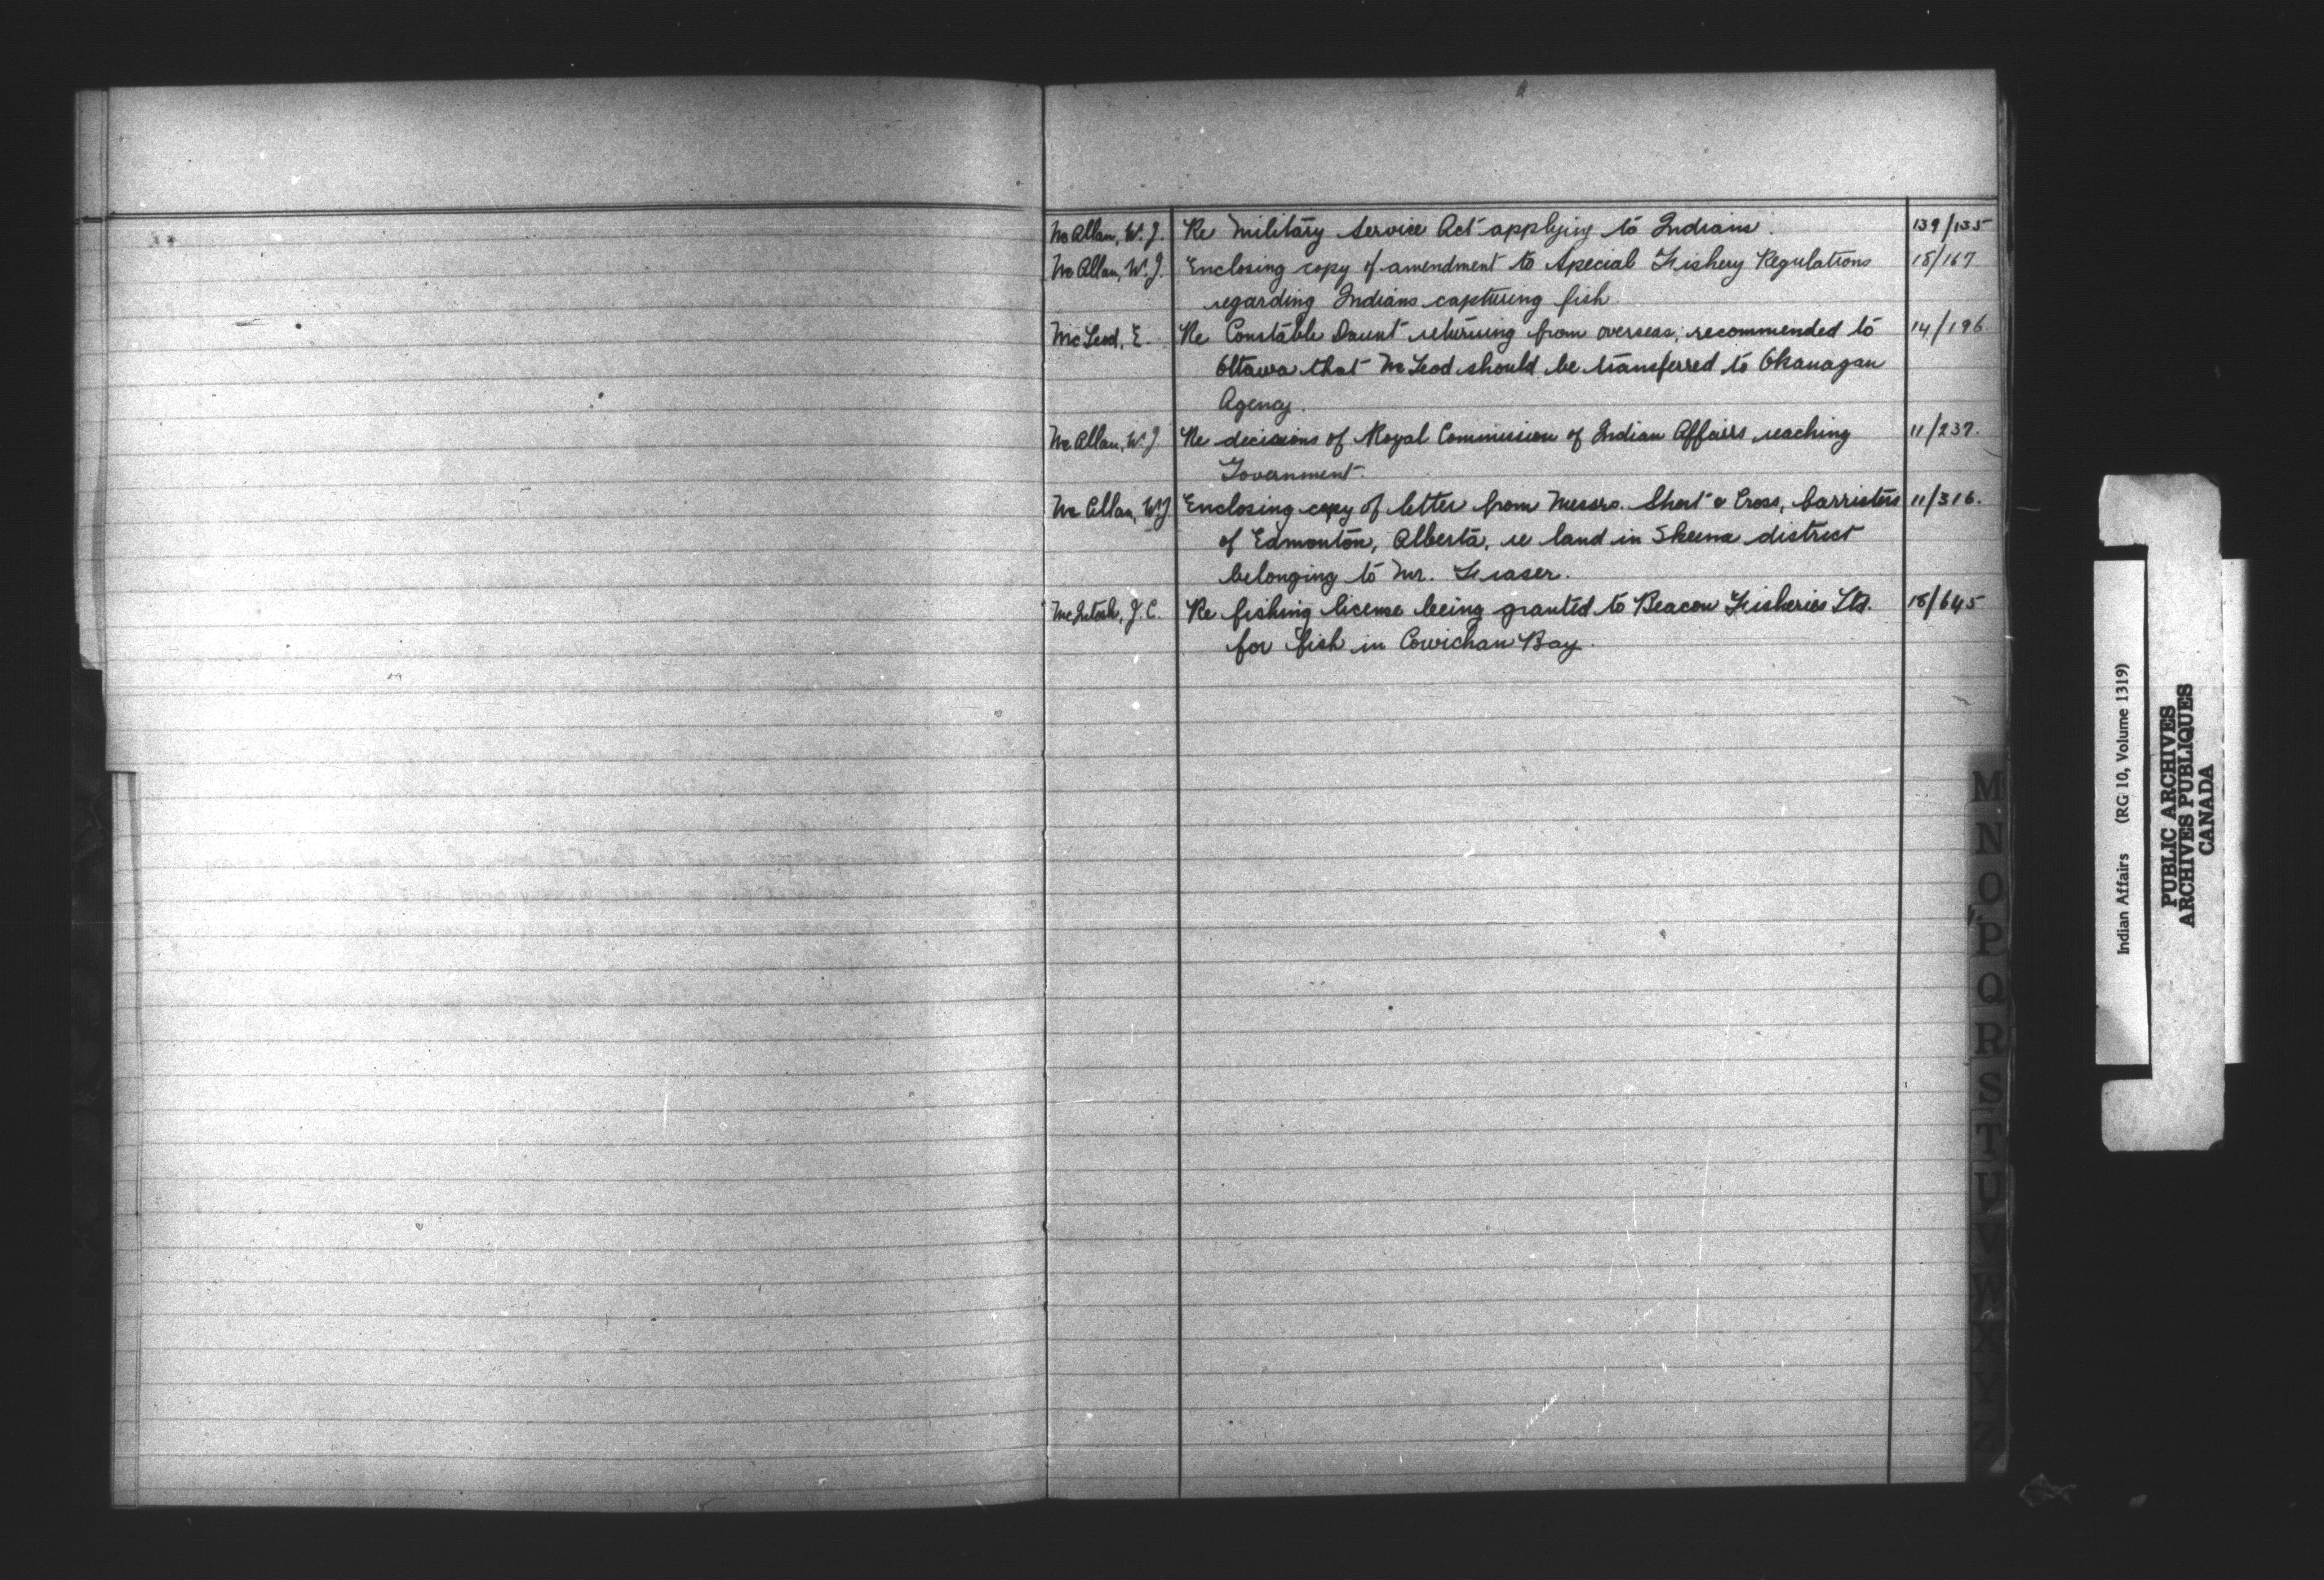 McAllan, W. J. Re Military Service Act applying to Indians. 139/135
McAllan, W. J. Enclosing copy of amendment to Special Fishery Regulations 18/167
regarding Indians capturing fish.
McLeod, E. Re Constable Daunt returning from overseas; recommended to 14/196
Ottawa that McLeod should be transferred to Okanagan
Agency.
McAllan, W. J. Re decisions of Royal Commission of Indian Affairs reaching 11/237.
Government.
McAllan, W. J. Enclosing copy of letter from Messrs. Short & Cross, barristers 11/316.
of Edmonton, Alberta, re land in Skeena district
belonging to Mr. Fraser.
McIntosh, J. C. Re fishing license being granted to Beacon Fisheries Ltd. 18/645
for fish in Cowichan Bay.
M
N
O
P
Q
R
S
T
U
V
W
X
Y
Z
Indian Affairs (RG 10, Volume 1319)
PUBLIC ARCHIVES
ARCHIVES PUBLIQUES
CANADA